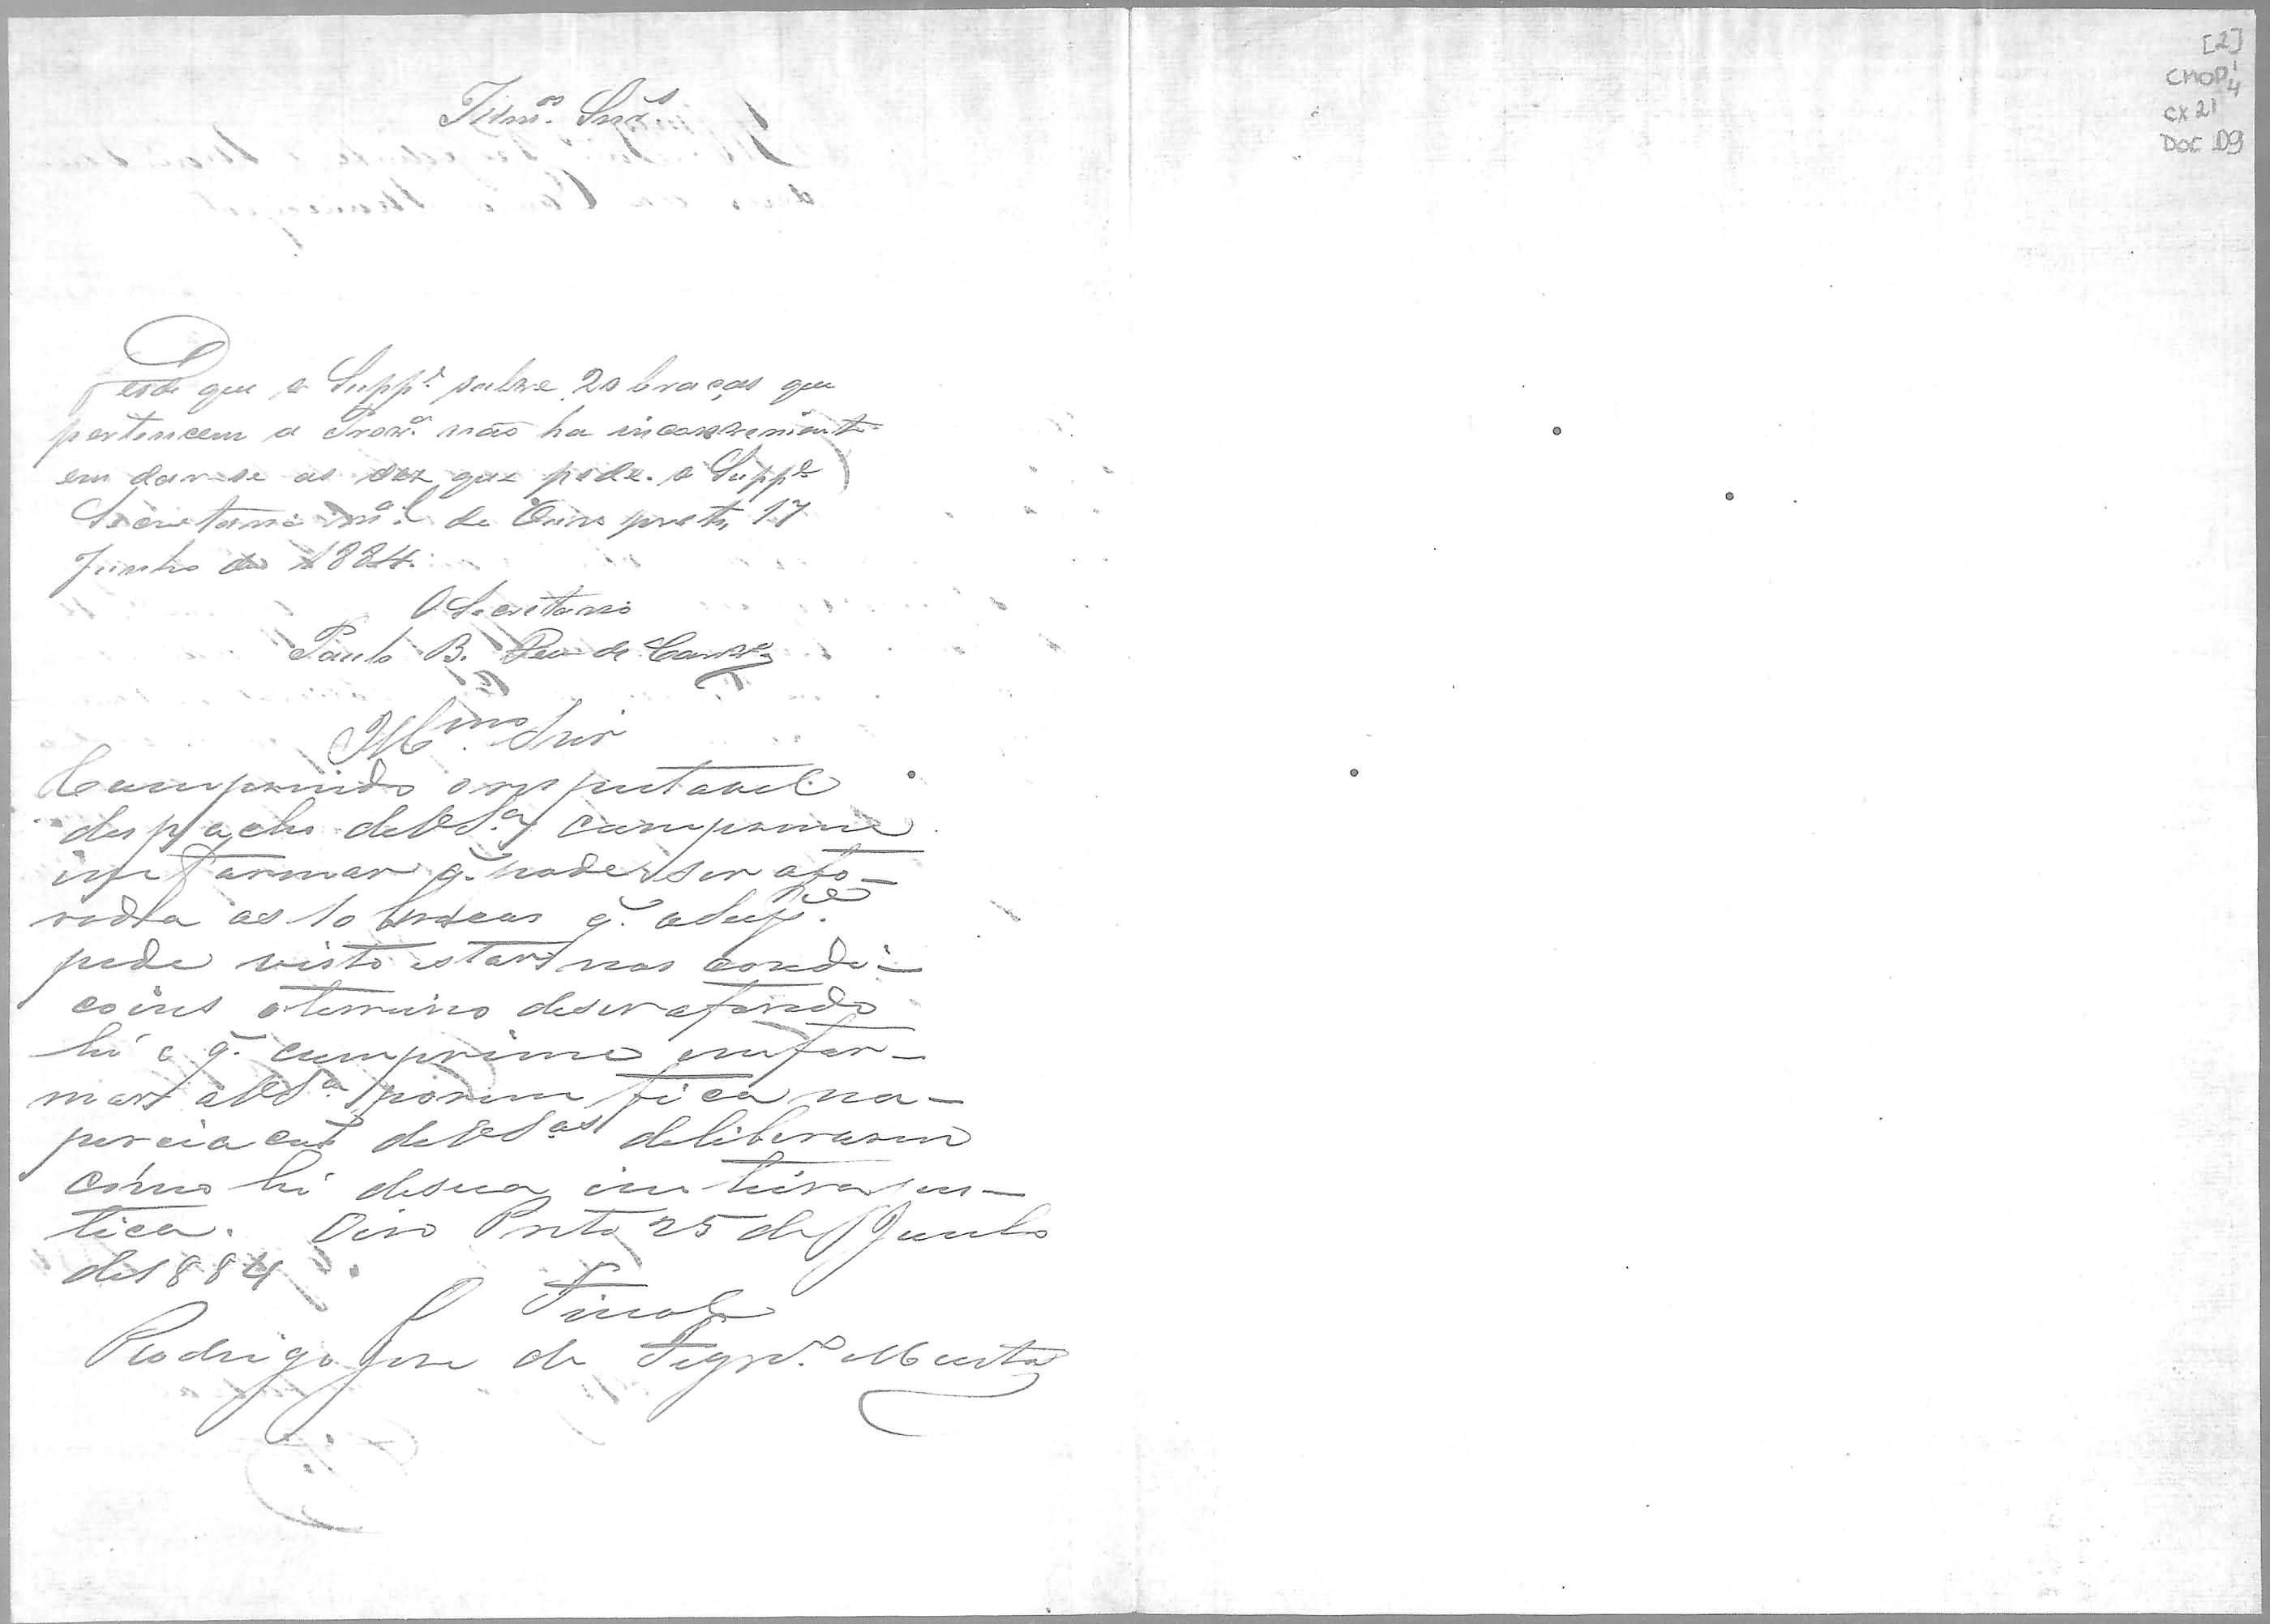 [2]
CMOP
cx 21
DOC 09
Illmos. Snrs.
Desde que o Suppe. sobre 20 braças que
pertencem a não ha inconveniente
em dar-se as dez que pede o Suppe
Secretaria mal. de Ouro preto, 17
Junho de 1884.
O Secretario
Paulo B. de
Illmo. Snr
Comprindo o respeitavel
despacho de VSa. cumprime
informar q. pode ser afo-
rada as 10 bracas q. o Supe.
pede visto estar nas condi-
coins o terreino de ser aforado
hé o q. cumprime emfor-
mar a VSa. porem fica na-
de VSas deliberarem
cómo hé de sua inteira jus-
tica. Oiro Preto 25 de Junho
de 1884
Fiscal
Rodrigo Jose de Figrdo. Murta